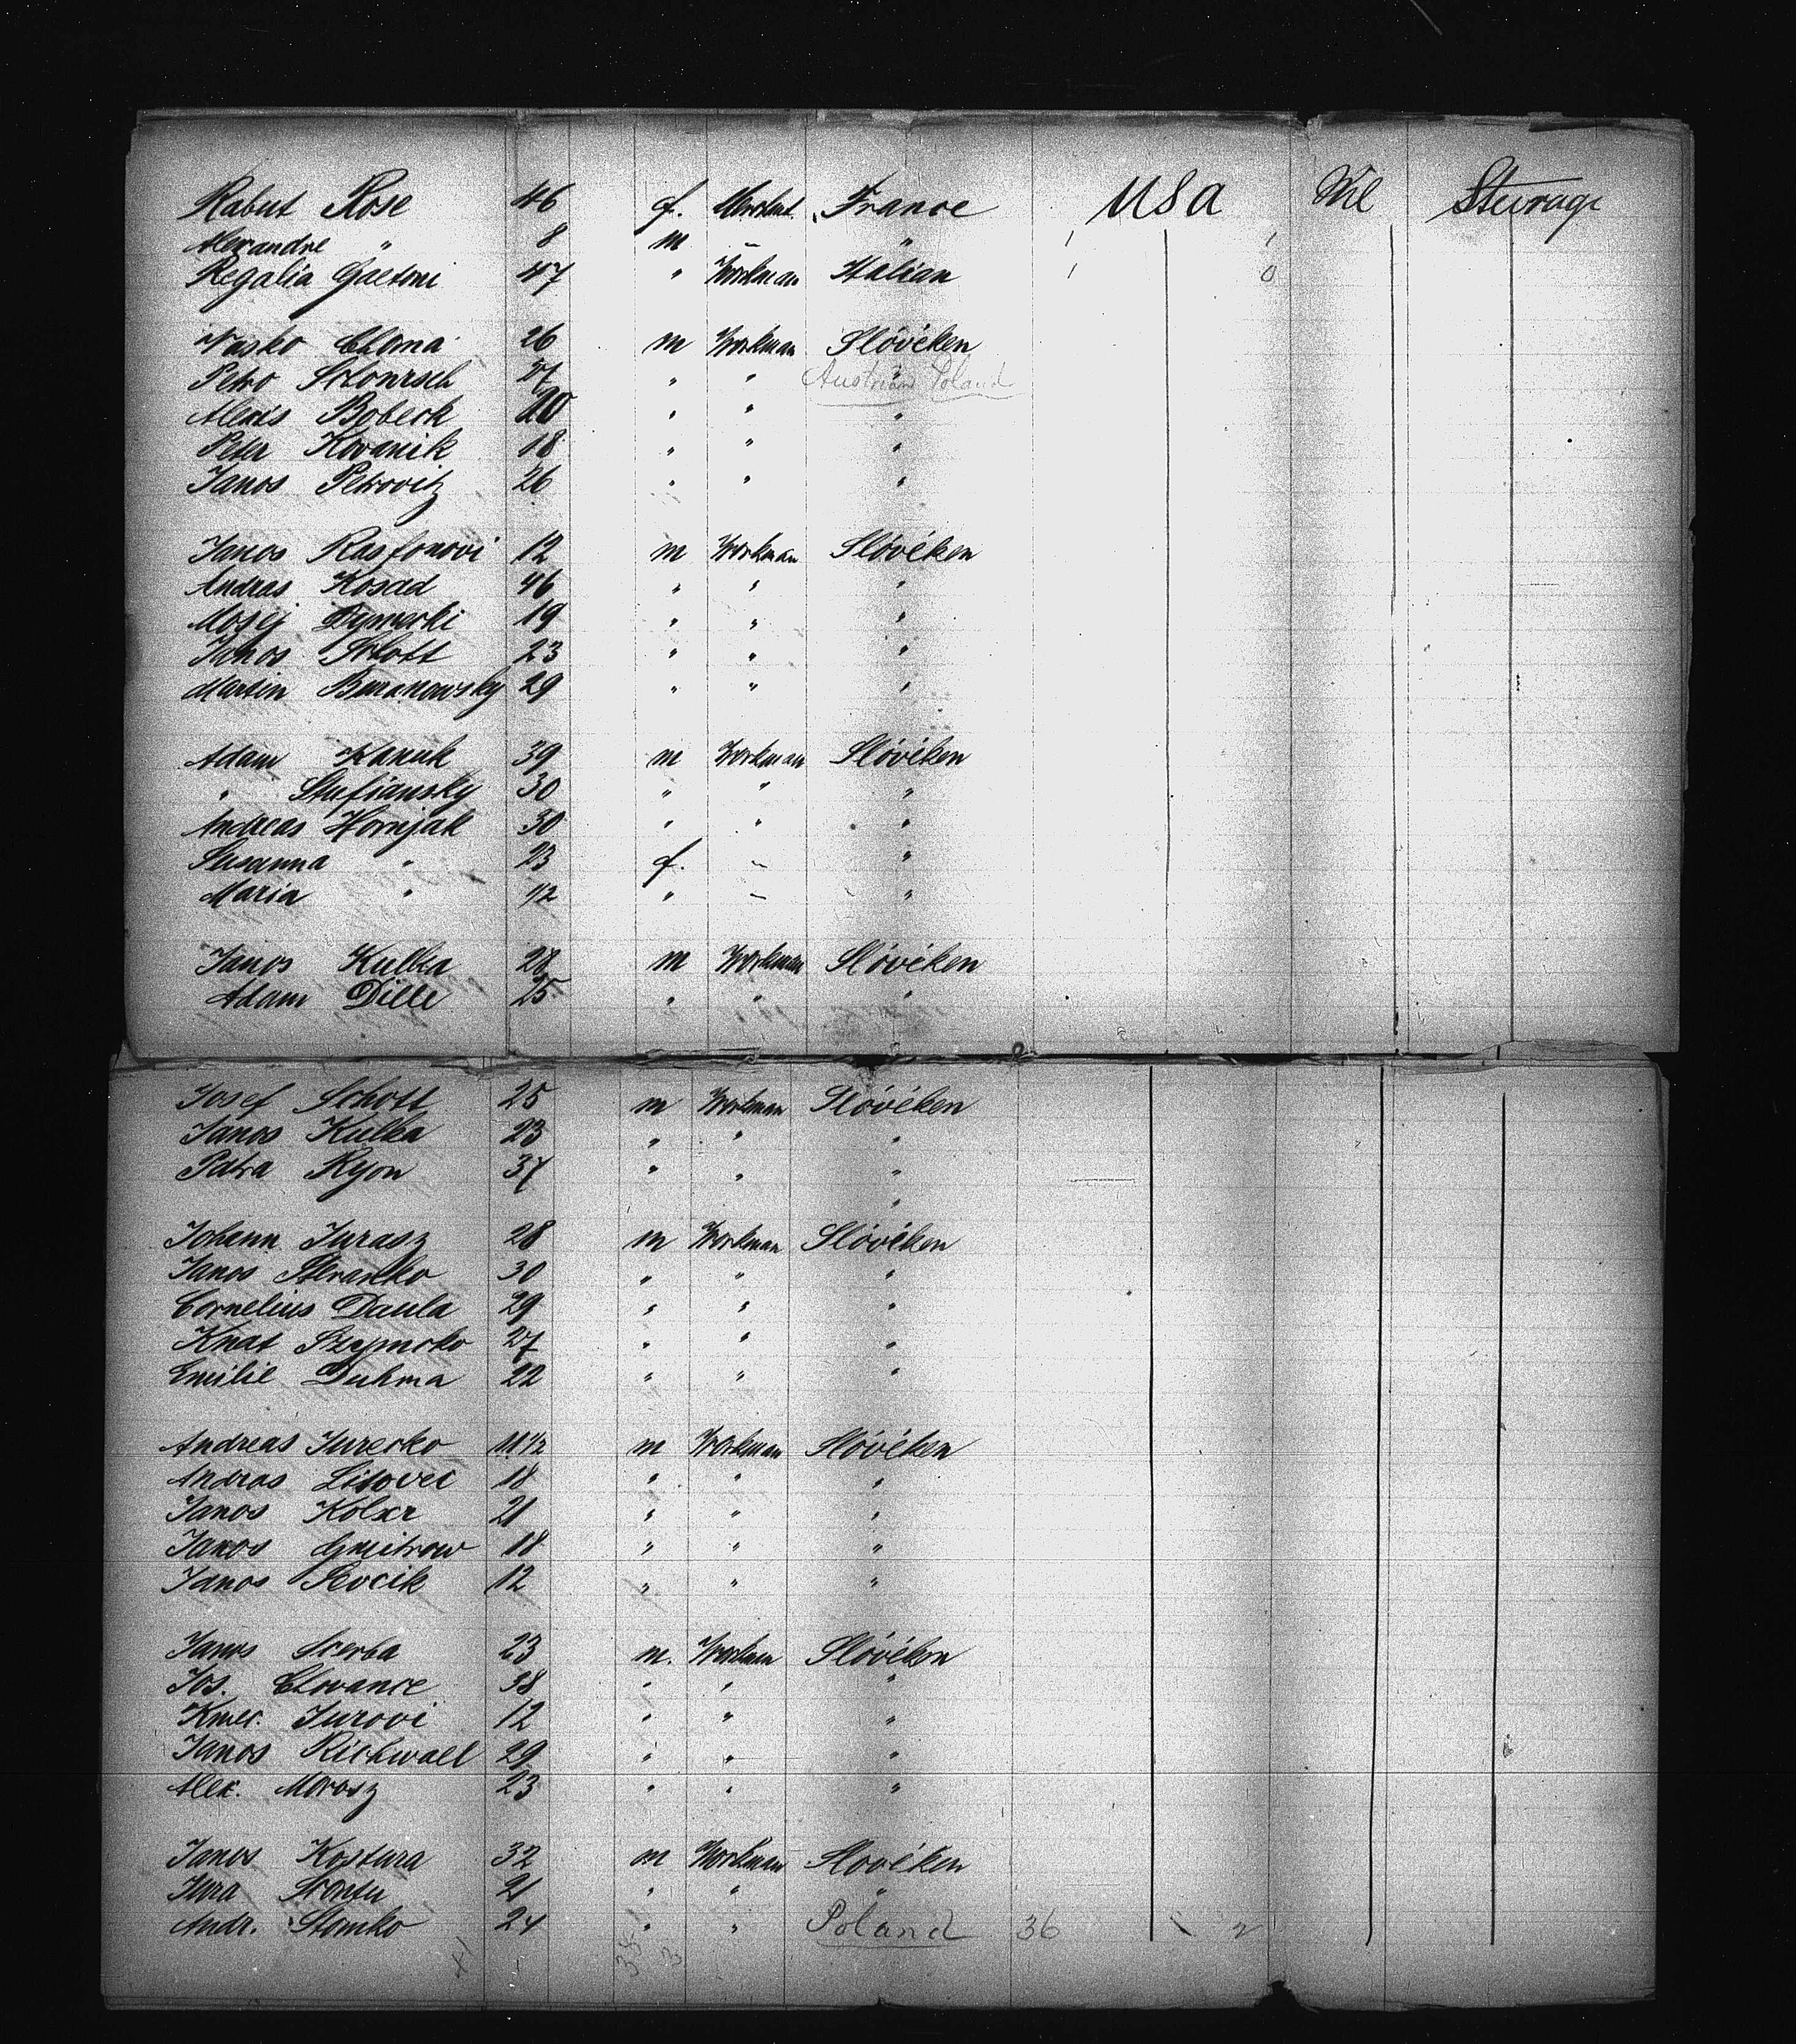 Rabut Rose 46 f. France USA Nil Steerage
Alexandre " 8 m – "
Regalia Gaetoni 47 " Workman Italian
Vasko Choma 26 m Workman Slovéken
Petro 27 " " Austrian Poland
Alexis Bobeck 20 " " "
Peter Kovanik 18 " " "
Janos Petrovitz 26 " " "
Janos Rasfonovi 12 m Workman Slovéken
Andras Kosad 46 " " "
Mosej 19 " " "
Janos Schott 23 " " "
Martin Baranowsky 29 " " "
Adam Kanuk 39 m Workman Slovéken
" Stufiansky 30 " " "
Andreas Hornjak 30 " " "
Susanna " 23 f. – "
Maria " 1/2 " – "
Janos Kulka 28 m Workman Slovéken
Adam Dille 25 " " "
Josef Schott 25 m Workman Slovéken
Janos Kulka 23 " " "
Petra Kyon 37 " " "
Johann Jurasz 28 m Workman Slovéken
Janos Steranko 30 " " "
Cornelius Daula 29 " " "
Knat Szymcko 27 " " "
Emilie Duhma 22 " " "
Andreas Jurecko 11 1/2 m Workman Slovéken
Andras Litovec 18 " " "
Janos Kolxr 21 " " "
Janos Gmitrow 18 " " "
Janos Sevcik 12 " " "
Janos Scerba 23 m. Workman Slovéken
Jos. Chovance 38 " " "
Kmec. Jurovi 12 " " "
Janos Richwall 29 " " "
Alex. Morosz 23 " " "
Janos Kostura 32 m Workman Slovéken
Jura 21 " " "
Andr. Stomko 24 " " Poland 36 2
41 38 3